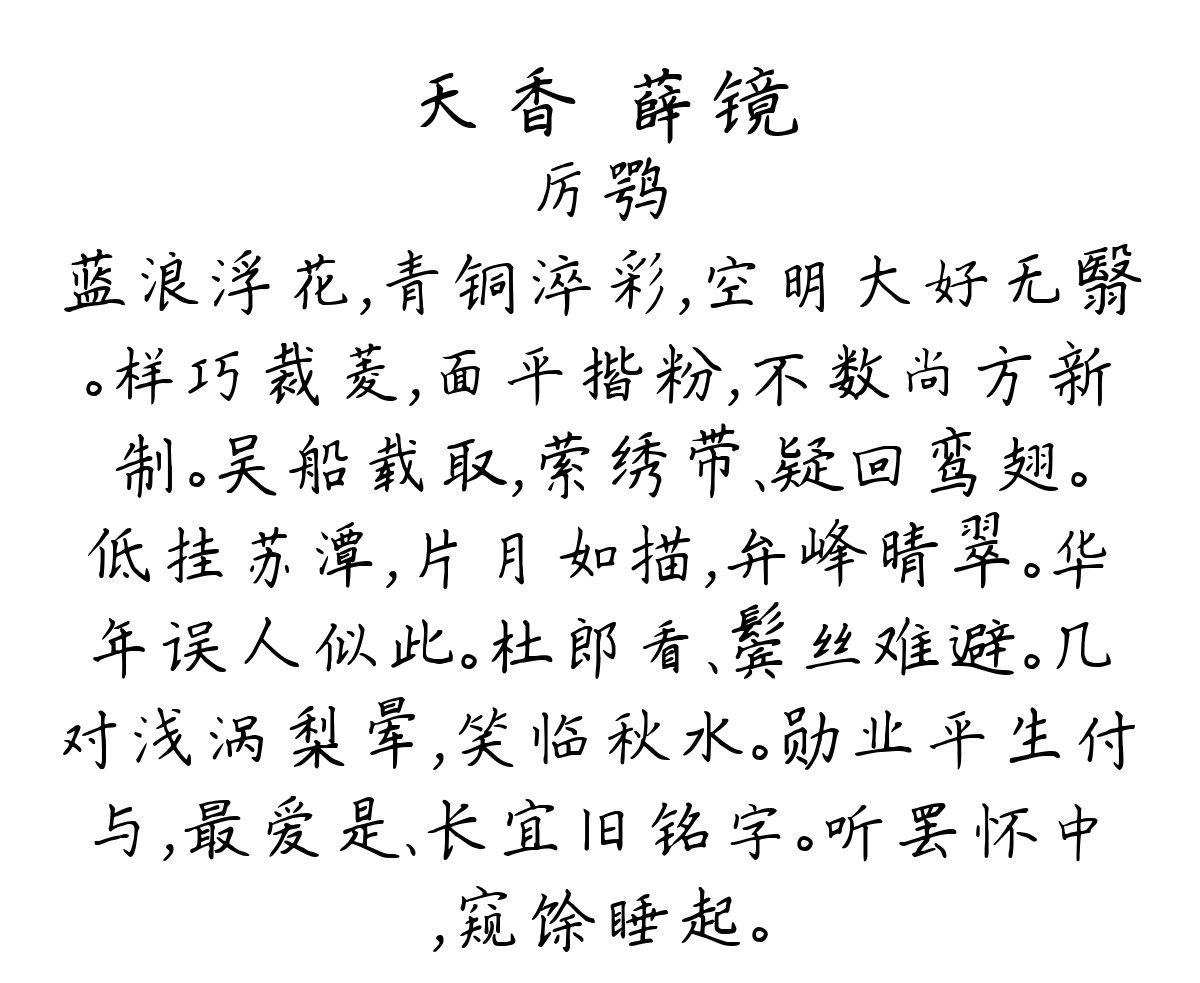 天香 薛镜
厉鹗
蓝浪浮花,青铜淬彩,空明大好无翳
。样巧裁菱,面平揩粉,不数尚方新
制。吴船载取,萦绣带、疑回鸾翅。
低挂苏潭,片月如描,弁峰晴翠。华
年误人似此。杜郎看、鬓丝难避。几
对浅涡梨晕,笑临秋水。勋业平生付
与,最爱是、长宜旧铭字。听罢怀中
,窥馀睡起。